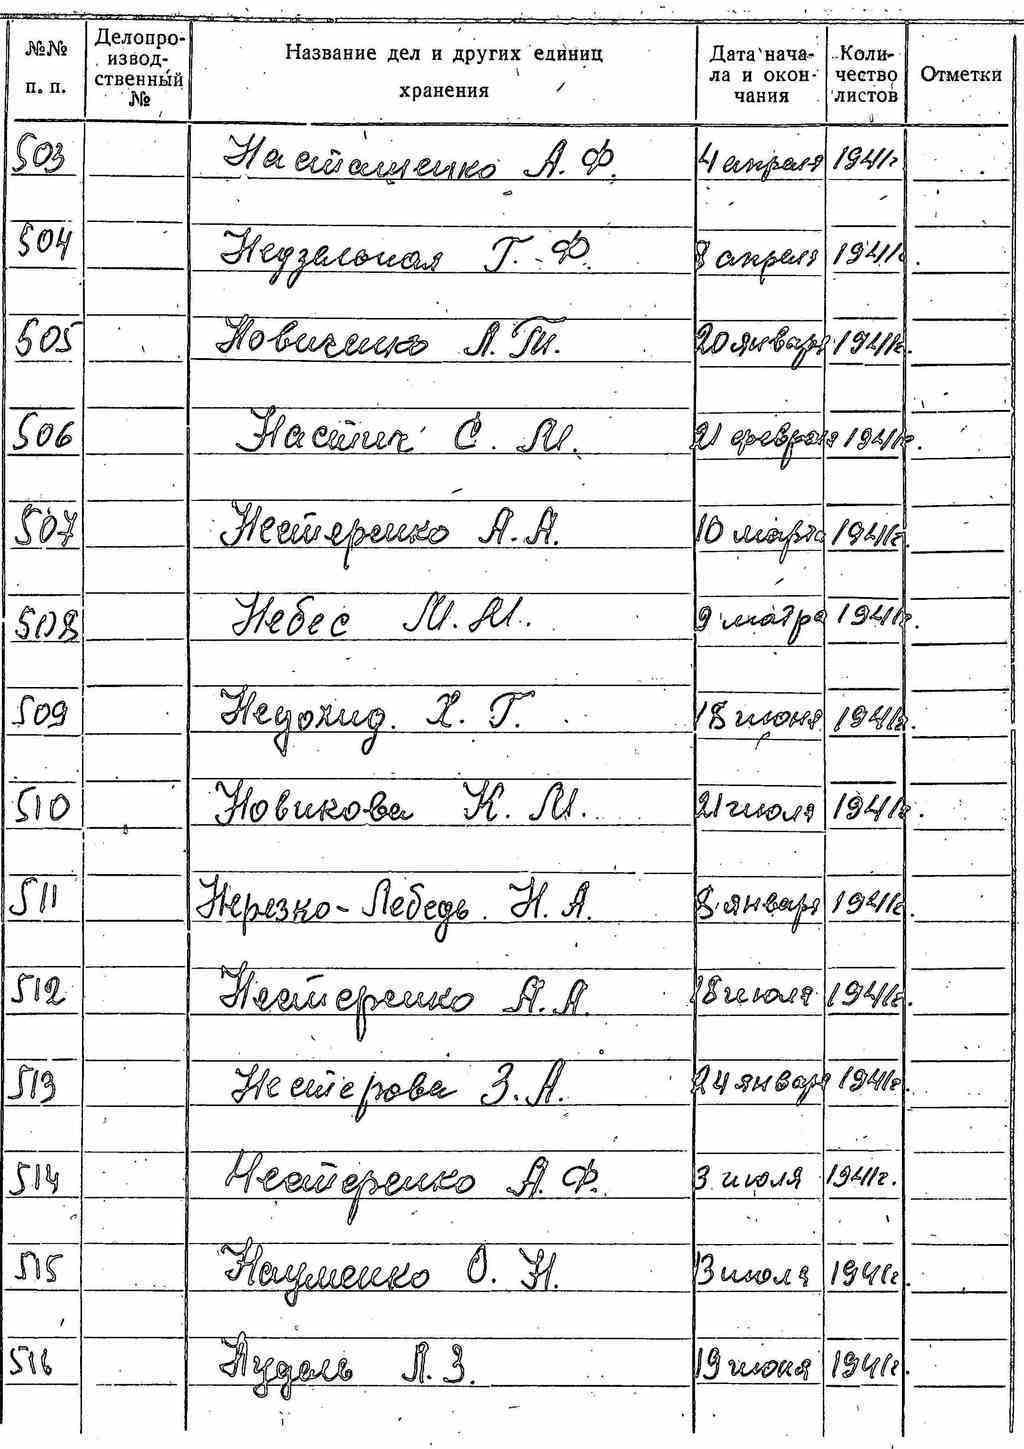 №№ п. п. Делопроизводственный № Название дел и других единиц хранения Дата начала и окончания Количество листов Отметки
503 Насташенко А. Ф. 4 апреля 1941г
504 Недзельская Г. Ф. 8 апреля 1941г.
505 Новиченко А. Ти. 20 января 1941г.
506 Настич С. М. 21 февраля 1941г.
507 Нестеренко А. А. 10 марта 1941г.
508 Небес М. М. 9 матра 1941г.
509 Недохид. Х. Г. 18 июня 1941г.
510 Новикова К. М. 21 июля 1941г.
511 Нерезко-Лебедь. Н. А. 8 января 1941г.
512 Нестеренко А. А. 18 июля 1941г.
513 Нестерова З. А. 24 января 1941г.
514 Нестеренко А. Ф. 3 июля 1941г.
515 Науменко О. Н. 13 июля 1941г.
516 Нудель Л. З. 19 июня 1941г.